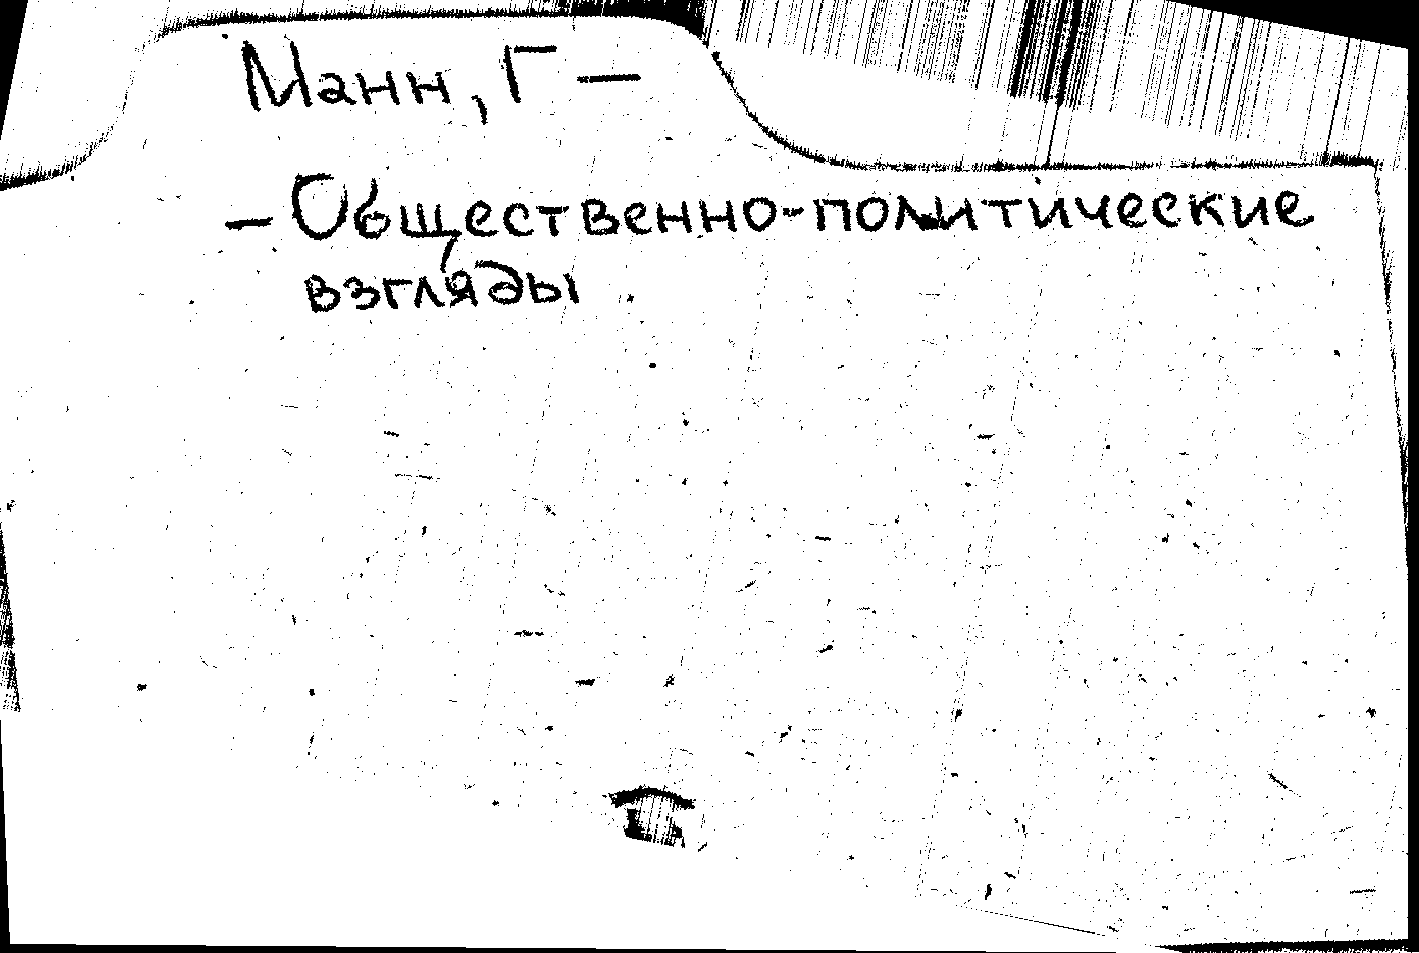 Манн, Г —
— Общественно-политические
взгляды